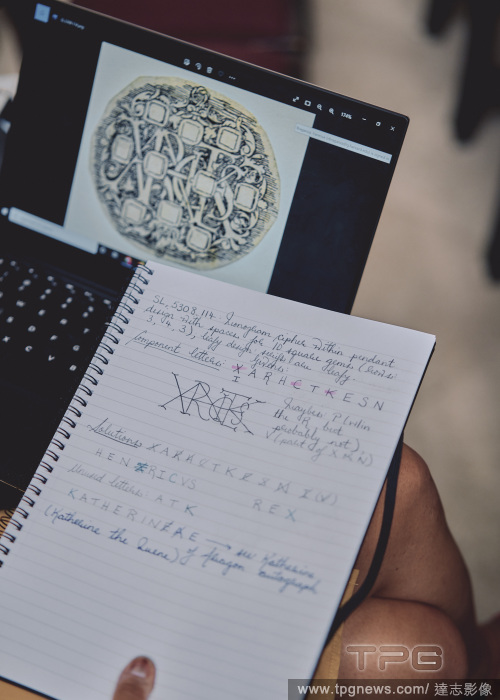 134%
SL, 5308, 114. Monogram cipher within pendant
design with spaces for 10 square gems (Series:
3, 4, 3), leafy design
Component letters: X A R H C T K E S N
I
Maybe P (within
the R, but
probably not)
V (part of X M N)
Solution: X A R H C T K E S N I (V)
HENRICVS REX
Unused letters: A T K
KATHERINE → see Katherine
(Katherine the Quene) of Aragon autograph
TPG
www.tpgnews.com/ 達志影像